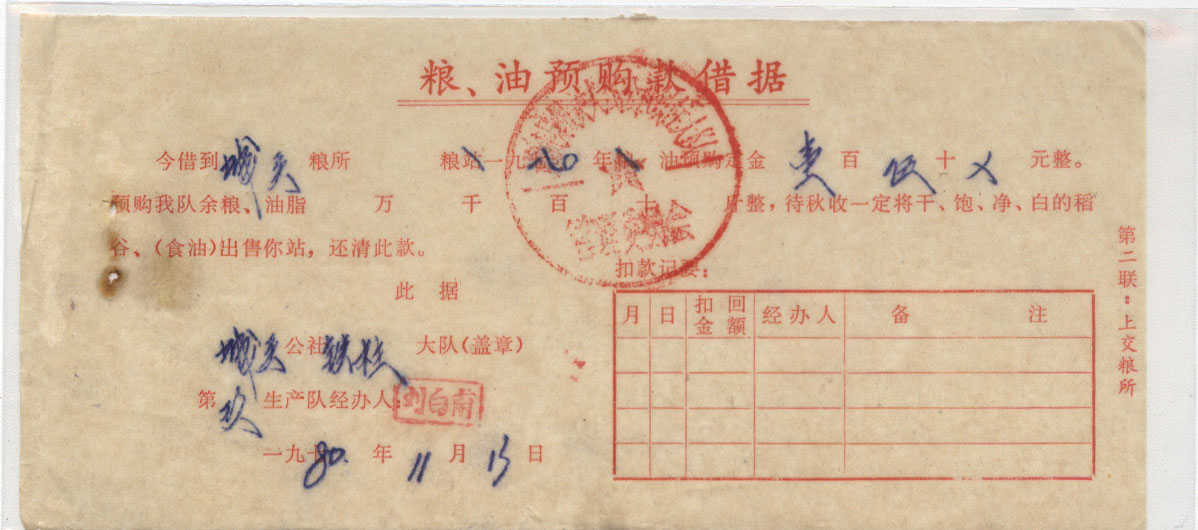 粮、油预购款借据
今借到城关粮所 粮站一九 80年粮、油预购定金 壹百伍十 元整。
预购我队余粮、油脂 万 千 百 十 斤整，待秋收一定将干、饱、净、白的稻
谷、(食油)出售你站，还清此款。
此据
城关公社 大队(盖章)
第 玖 生产队经办人：
一九 80. 年 11 月 13 日
管理委员会
扣款记要：
月 日 扣回金额 经办人 备注
第二联：上交粮所